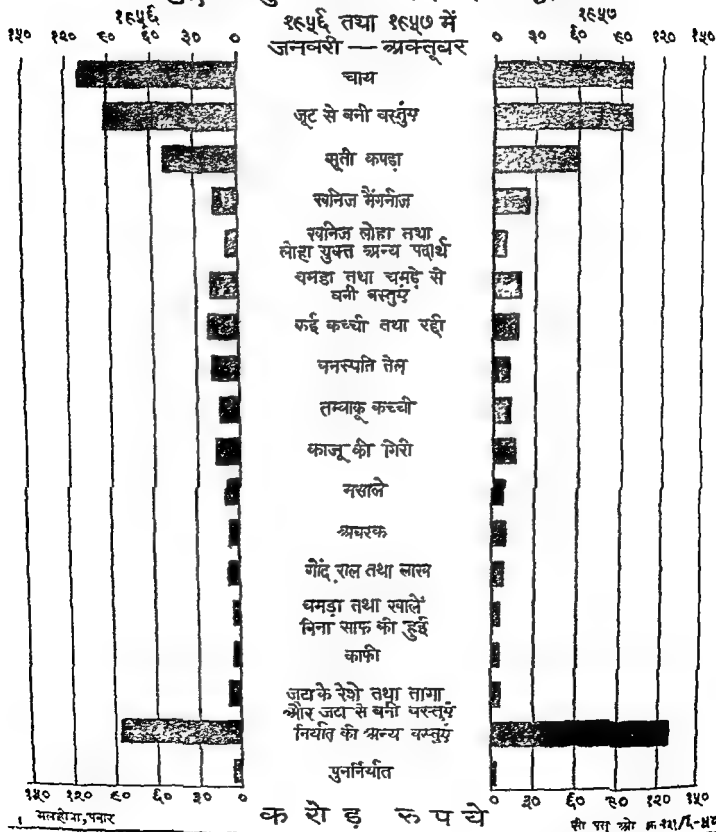 १९५६ १९५६ तथा १९५७ में १९५७
१५० १२० ९० ६० ३० ० जनवरी — अक्तूबर ० ३० ६० ९० १२० १५०
चाय
जूट से बनी वस्तुएं
सूती कपड़ा
खनिज मैंगनीज
खनिज लोहा तथा
लोहा युक्त अन्य पदार्थ
चमडा तथा चमड़े से
बनी वस्तुएं
रुई कच्ची तथा रद्दी
वनस्पति तेल
तम्बाकू कच्ची
काजू की गिरी
मसाले
अबरक
गोंद, राल तथा लाख
चमड़ा तथा खालें
बिना साफ की हुई
काफी
जटा के रेशे तथा तागा
और जटा से बनी वस्तुएं
निर्यात की अन्य वस्तुएं
पुनर्निर्यात
१५० १२० ९० ६० ३० ० करोड़ रुपये ० ३० ६० ९० १२० १५०